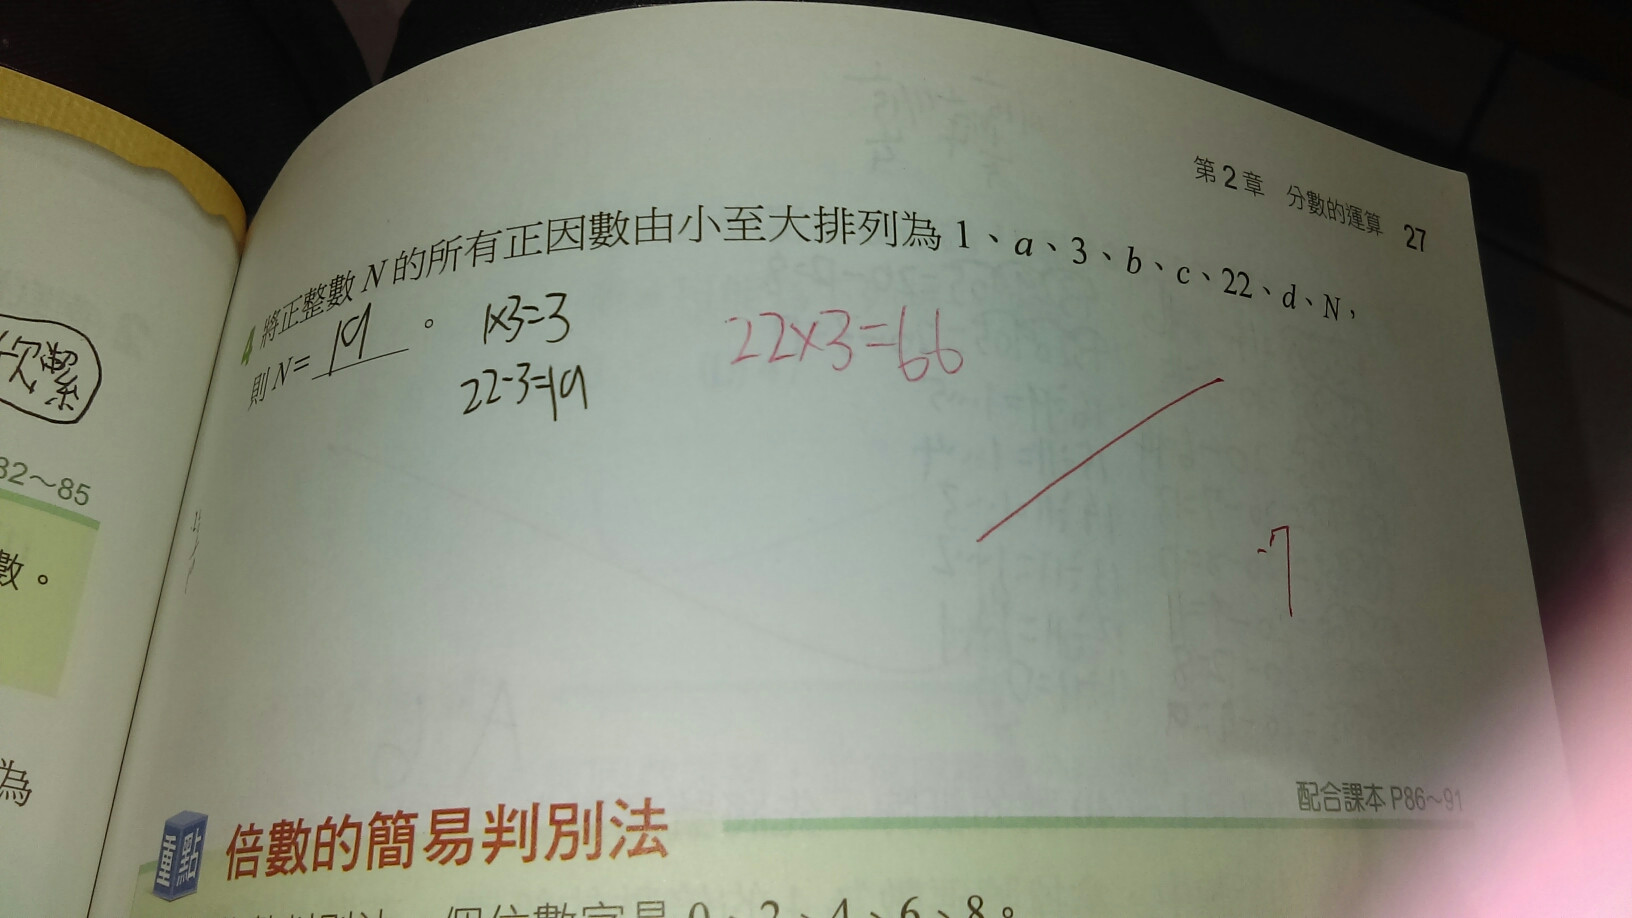 第2章 分數的運算 27
4 將正整數N的所有正因數由小至大排列為1、a、3、b、c、22、d、N,
則N=19。
1×3=3
22-3=19
22×3=66
-7
次冪
82~85
數。
為
配合課本P86~91
重點 倍數的簡易判別法
個位數字是0、2、4、6、8。